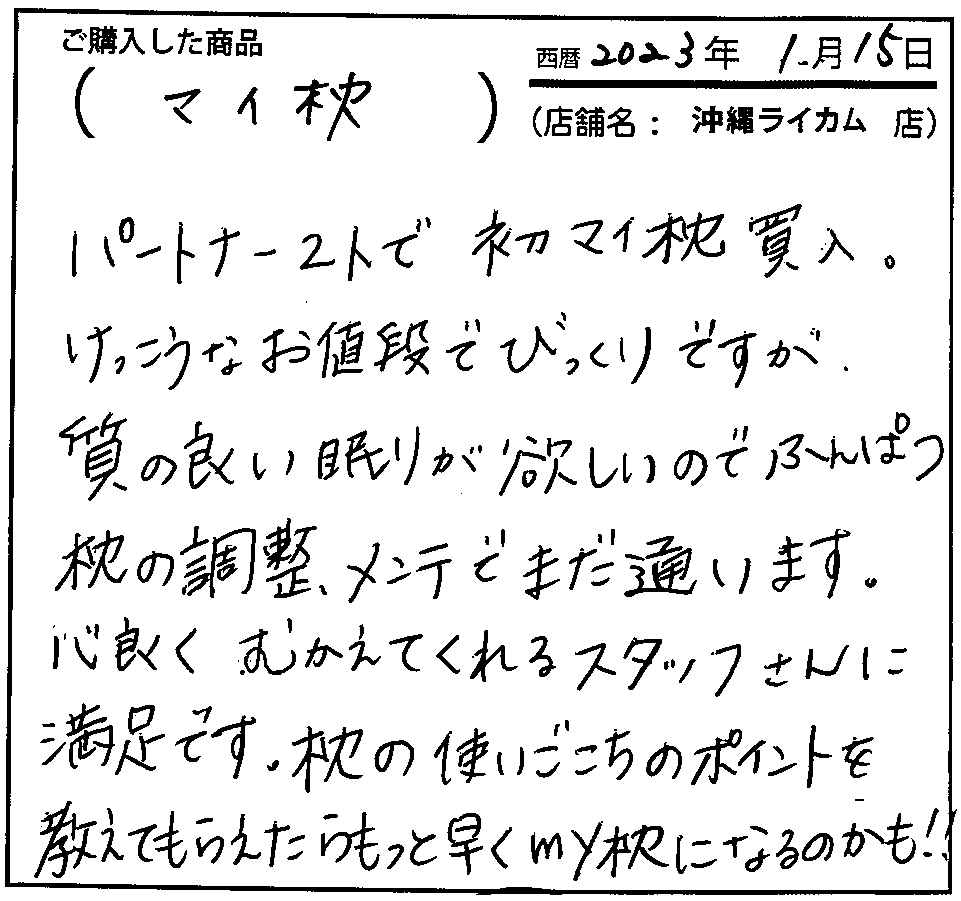 ご購入した商品
西暦 2023年 1.月15日
( マイ枕 )
(店舗名： 沖縄ライカム 店)
パートナー2人で 初マイ枕 買入。
けっこうなお値段でびっくりですが
質の良い眠りが欲しいのでふんぱつ
枕の調整、メンテでまだ通います。
心良く むかえてくれるスタッフさんに
満足です。枕の使いごこちのポイントを
教えてもらえたらもっと早くmy枕になるのかも!!